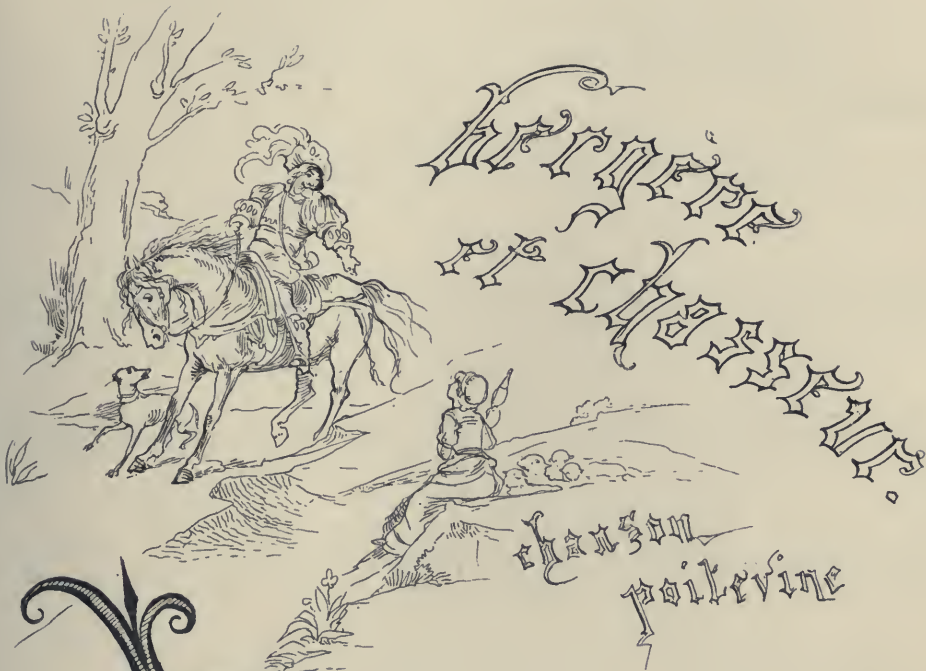 Bergère
et chasseur.
chanson
poitevine